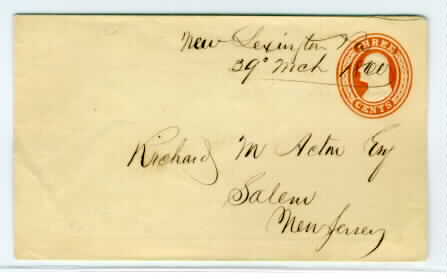 New Lexington
29° Mch
THREE
CENTS
Richard M Acton Esq
Salem
New Jersey